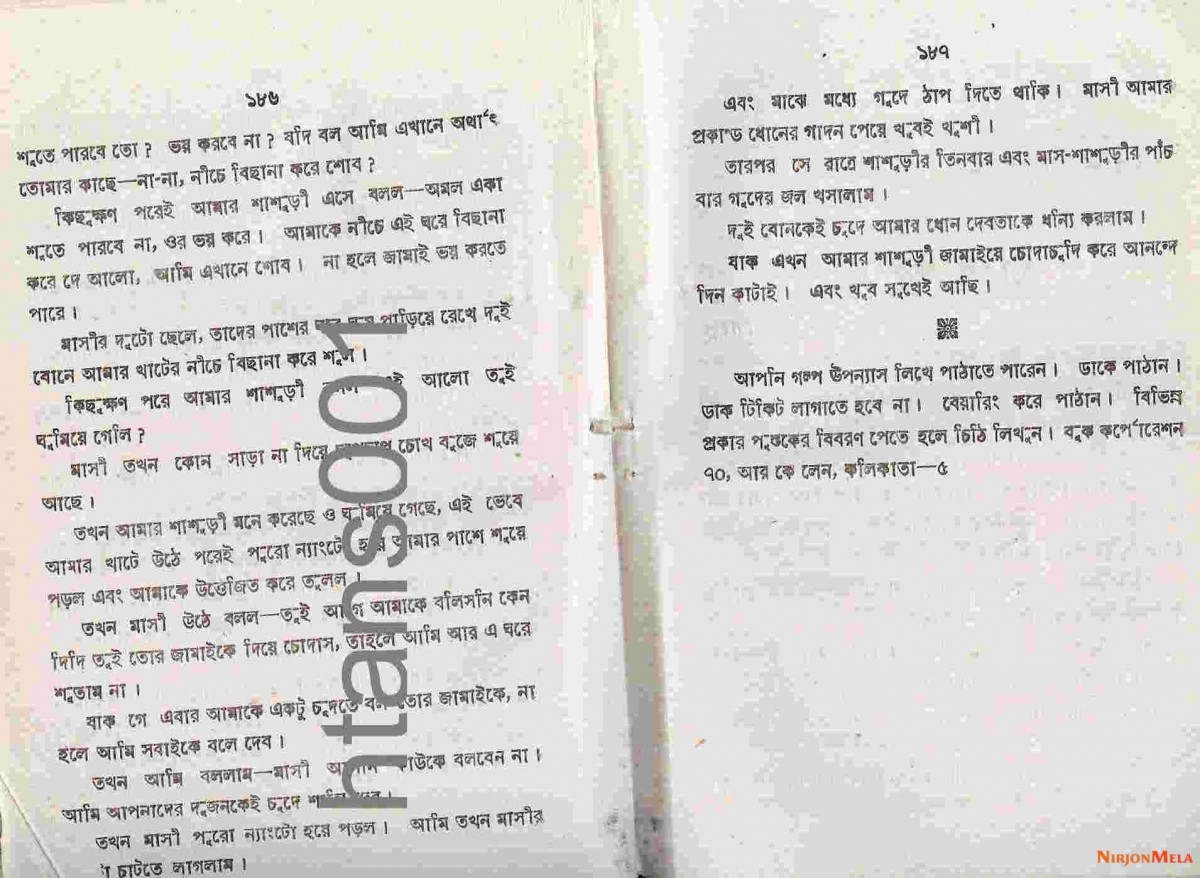 ১৮৬
শুতে পারবে তো ? ভয় করবে না ? যদি বল আমি এখানে অর্থাৎ
তোমার কাছে—না-না, নীচে বিছানা করে শোব ?
কিছুক্ষণ পরেই আমার শাশুড়ী এসে বলল—অমল একা
শুতে পারবে না, ওর ভয় করে । আমাকে নীচে এই ঘরে বিছানা
করে দে আলো, আমি এখানে শোব । না হলে জামাই ভয় করতে
পারে ।
মাসীর দুটো ছেলে, তাদের পাশের রেখে দুই
বোনে আমার খাটের নীচে বিছানা করে শুল ।
কিছুক্ষণ পরে আমার শাশুড়ী আলো তুই
ঘুমিয়ে গেলি ?
মাসী তখন কোন সাড়া না দিয়ে চোখ বুজে শুয়ে
আছে ।
তখন আমার শাশুড়ী মনে করেছে ও ঘুমিয়ে গেছে, এই ভেবে
আমার খাটে উঠে পরেই পুরো ন্যাংটো হয়ে আমার পাশে শুয়ে
পড়ল এবং আমাকে উত্তেজিত করে তুলল ।
তখন মাসী উঠে বলল—তুই আগে আমাকে বলিসনি কেন
দিদি তুই তোর জামাইকে দিয়ে চোদাস, তাহলে আমি আর এ ঘরে
শুতাম না ।
যাক গে এবার আমাকে একটু চুদতে বল তোর জামাইকে, না
হলে আমি সবাইকে বলে দেব ।
তখন আমি বললাম—মাসী কাউকে বলবেন না ।
আমি আপনাদের দুজনকেই চুদে
তখন মাসী পুরো ন্যাংটো হয়ে পড়ল । আমি তখন মাসীর
চাটতে লাগলাম ।
১৮৭
এবং মাঝে মধ্যে গুদে ঠাপ দিতে থাকি । মাসী আমার
প্রকাণ্ড ধোনের গাদন পেয়ে খুবই খুশী ।
তারপর সে রাত্রে শাশুড়ীর তিনবার এবং মাস-শাশুড়ীর পাঁচ
বার গুদের জল খসালাম ।
দুই বোনকেই চুদে আমার ধোন দেবতাকে ধন্যি করলাম ।
যাক এখন আমার শাশুড়ী জামাইয়ে চোদাচুদি করে আনন্দে
দিন কাটাই । এবং খুব সুখেই আছি ।
আপনি গল্প উপন্যাস লিখে পাঠাতে পারেন । ডাকে পাঠান ।
ডাক টিকিট লাগাতে হবে না । বেয়ারিং করে পাঠান । বিভিন্ন
প্রকার পুস্তকের বিবরণ পেতে হলে চিঠি লিখুন । বুক কর্পোরেশন
৭০, আর কে লেন, কলিকাতা—৫
ntans001
NIRJONMELA